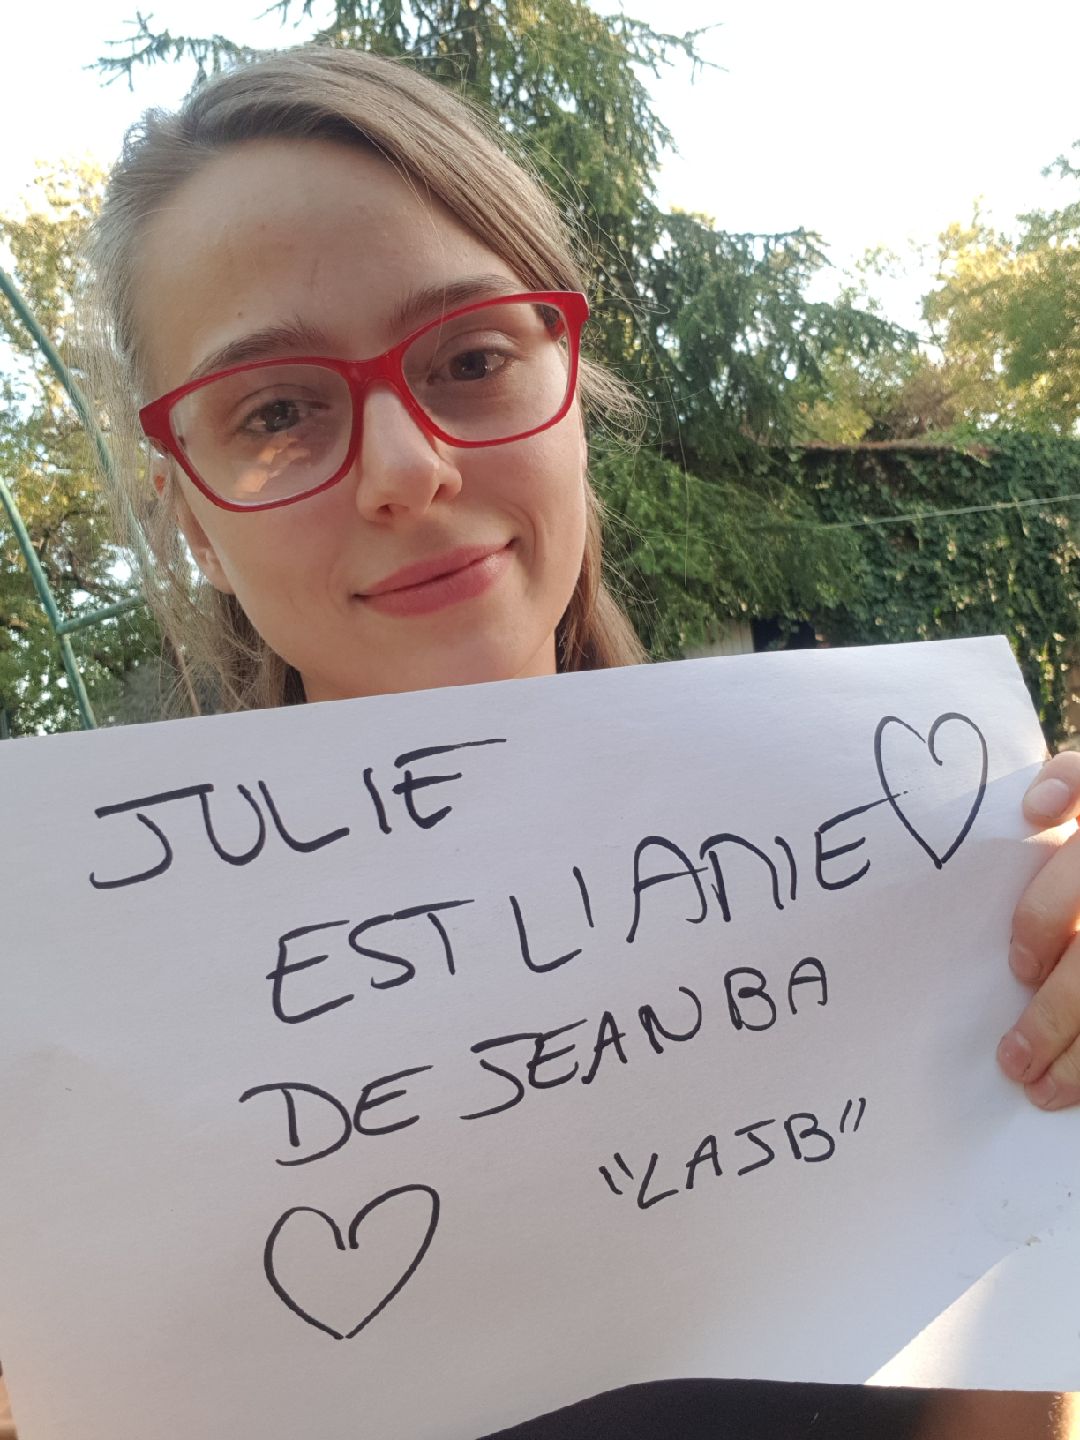 JULIE
EST L'AMIE
DE JEANBA
"LAJB"